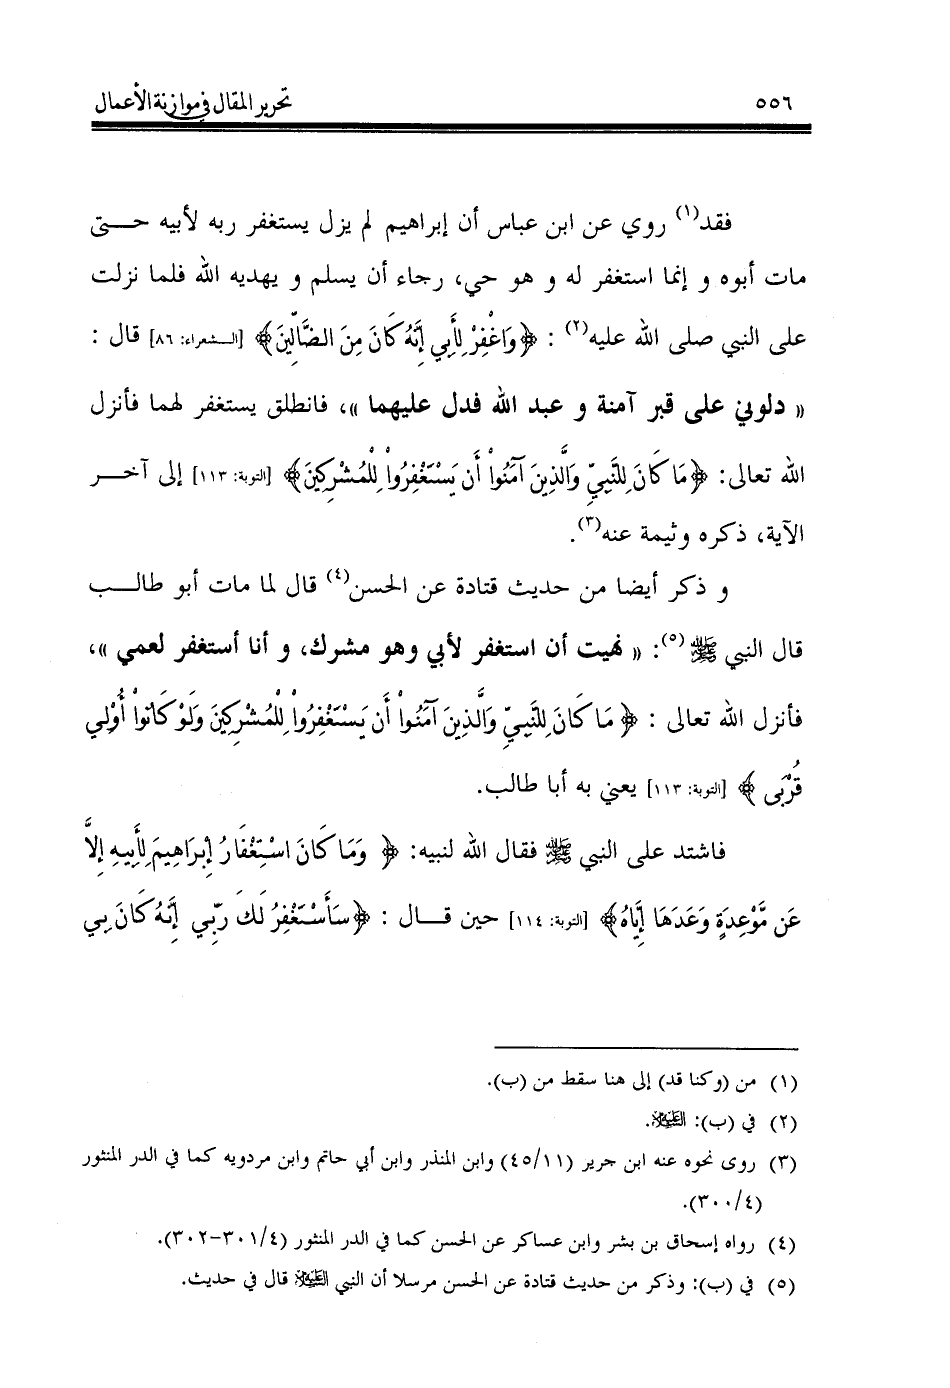 ٥٥٦ تحرير المقال في موازنة الأعمال
فقد(١) روي عن ابن عباس أن إبراهيم لم يزل يستغفر ربه لأبيه حـــتى
مات أبوه و إنما استغفر له و هو حي، رجاء أن يسلم و يهديه الله فلما نزلت
على النبي صلى الله عليه(٢) : ﴿وَاغْفِرْ لِأَبِي إِنَّهُ كَانَ مِنَ الضَّالِّينَ﴾ [الـشعراء: ٨٦] قال :
« دلوني على قبر آمنة و عبد الله فدل عليهما »، فانطلق يستغفر لهما فأنزل
الله تعالى: ﴿مَا كَانَ لِلنَّبِيِّ وَالَّذِينَ آمَنُواْ أَن يَسْتَغْفِرُواْ لِلْمُشْرِكِينَ﴾ [التوبة: ١١٣] إلى آخــر
الآية، ذكره وثيمة عنه(٣).
و ذكر أيضا من حديث قتادة عن الحسن(٤) قال لما مات أبو طالـــب
قال النبي ﷺ(٥): « نهيت أن استغفر لأبي وهو مشرك، و أنا أستغفر لعمي »،
فأنزل الله تعالى : ﴿ مَا كَانَ لِلنَّبِيِّ وَالَّذِينَ آمَنُواْ أَن يَسْتَغْفِرُواْ لِلْمُشْرِكِينَ وَلَوْ كَانُواْ أُوْلِي
قُرْبَى ﴾ [التوبة: ١١٣] يعني به أبا طالب.
فاشتد على النبي ﷺ فقال الله لنبيه: ﴿ وَمَا كَانَ اسْتِغْفَارُ إِبْرَاهِيمَ لِأَبِيهِ إِلاَّ
عَن مَّوْعِدَةٍ وَعَدَهَا إِيَّاهُ﴾ [التوبة: ١١٤] حين قـــال : ﴿سَأَسْتَغْفِرُ لَكَ رَبِّي إِنَّهُ كَانَ بِي
(١) من (وكنا قد) إلى هنا سقط من (ب).
(٢) في (ب): العَلَيْهِ السَّلام.
(٣) روى نحوه عنه ابن جرير (٤٥/١١) وابن المنذر وابن أبي حاتم وابن مردويه كما في الدر المنثور
(٣٠٠/٤).
(٤) رواه إسحاق بن بشر وابن عساكر عن الحسن كما في الدر المنثور (٣٠١/٤-٣٠٢).
(٥) في (ب): وذكر من حديث قتادة عن الحسن مرسلا أن النبي العَلَيْهِ السَّلام قال في حديث.